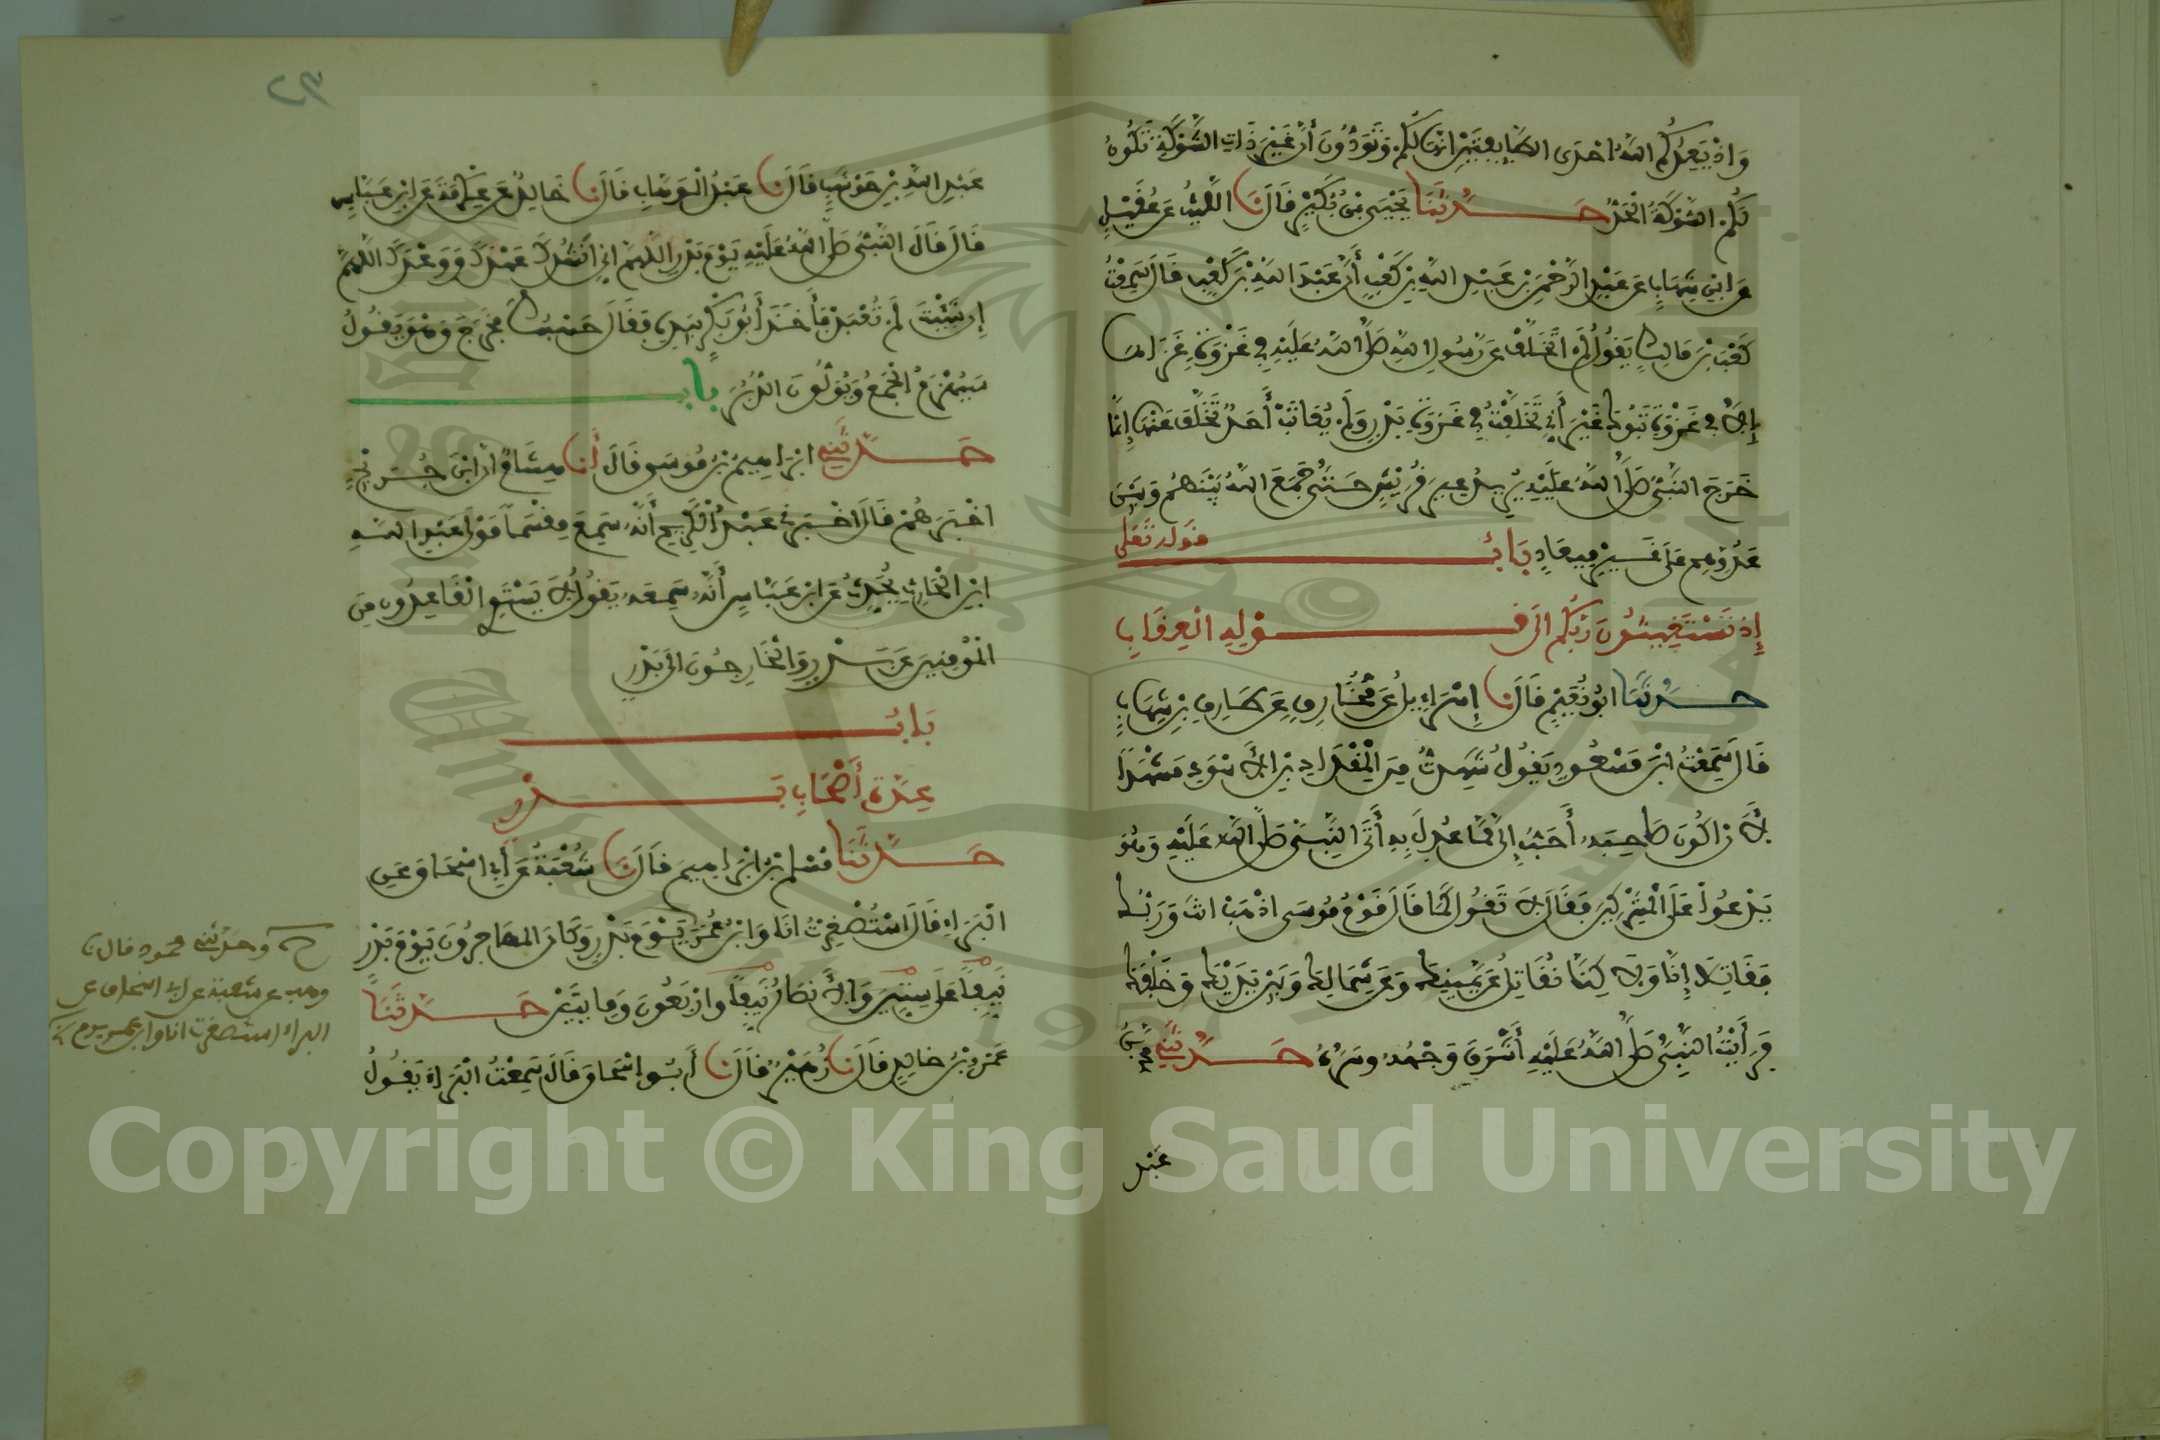 وَإِذْ يَعِدُكُمُ اللهُ إحْدَى الطَّايِفَتَيْنِ انَّهَا لَكُمْ وَتَوَدُّونَ أَنَّ غَيْرَ ذَاتِ الشَّوْكَةِ تَكُونُ
لَكُم الشَّوْكَةُ الْحَدُّ حَدَّثَنَا يَحْيَى بْنُ بُكَيْرٍ قَالَ نَا اللَّيْثُ عَن عُقَيْلٍ
عَن ابْنِ شِهَابٍ عَن عَبْدِ الرَّحْمَن بْن عَبْدِ اللهِ بْن كَعْبٍ أَنَّ عَبْدَ اللهِ بْنَ كَعْبٍ قَالَ سَمِعْتُ
كَعْبَ بْنَ مَالِكٍ يَقُولُ لَمْ اتَخَلَّفْ عَن رَّسُولِ اللهِ صَلَّى اللهُ عَلَيْهِ فِي غَزْوَةٍ غَزَاهَا
إِلاَّ فِي غَزْوَةِ تَبُوكَ غَيْرَ أَنِّي تَخَلَّفْتُ فِي غَزْوَةِ بَدْرٍ وَلَمْ يُعَاتَبْ أَحَدٌ تَخَلَّفَ عَنْهَا إِنَّمَا
خَرَجَ النَّبِيُّ صَلَّى اللهُ عَلَيْهِ يُرِيدُ عِيرَ قُرَيْشٍ حَتَّى جَمَعَ اللهُ بَيْنَهُمْ وَبَيْنَ
عَدُوِّهِم عَلَى غَيْرِ مِيعَادٍ بَابُ قوله تعلى
إِذْ تَسْتَغِيثُونَ رَبَّكُم الَى قَوْلِهِ الْعِقَابِ
حَدَّثَنَا ابُو نُعَيْمٍ قَالَ نَا إِسْرَاءِيلُ عَن مُّخَارِقٍ عَن طَارِقِ بْنِ شِهَابٍ
قَالَ سَمِعْتُ ابْنَ مَسْعُودٍ يَقُولُ شَهِدتُّ مِنَ الْمِقْدَادِ بْنِ الاَسْوَدِ مَشْهَدًا
لأَن اكُونَ صَاحِبَهُ أَحَبُّ إِلَيَّ مِمَّا عُدِلَ بِهِ أَتَى النَّبِيَّ صَلَّى اللهُ عَلَيْهِ وَهُوَ
يَدْعُوا عَلَى الْمُشْرِكِينَ فَقَالَ لاَ نَقُولُ كَمَا قَالَ قَوْمُ مُوسَى اذْهَبْ انتَ وَرَبُّكَ
فَقَاتِلاَ إِنَّا وَلاَكِنَّا نُقَاتِلُ عَن يَّمِينِكَ وَعَن شِمَالِكَ وَبَيْنَ يَدَيْكَ وَخَلْفَكَ
فَرَأَيْتُ النَّبِيَّ صَلَّى اللهُ عَلَيْهِ أَشْرَقَ وَجْهُهُ وسَرَّهُ حَدَّثَنِي مُحَمَّدُ بْنُ
عَبْدِ
عَبْدِ اللهِ بْنِ حَوْشَبٍ قَالَ نَا عَبْدُ الْوَهَّابِ قَالَ نَا خَالِدٌ عَن عِكْرِمَةَ عَن ابْنِ عَبَّاسٍ
قَالَ قَالَ النَّبِيُّ صَلَّى اللهُ عَلَيْهِ يَوْمَ بَدْرٍ اللَّهُمَّ انِّي أَنْشُدُكَ عَهْدَكَ وَوَعْدَكَ اللَّهُمَّ
إِن شِئْتَ لَمْ تُعْبَدْ فَأَخَذَ أَبُو بَكْرٍ بِيَدِهِ فَقَالَ حَسْبُكَ فَخَرَجَ وَهْوَ يَقُولُ
سَيُهْزَمُ الْجَمْعُ وَيُوَلُّونَ الدُّبُرَ بَابٌ
حَدَّثَنِي ابْرَاهِيمُ بْنُ مُوسَى قَالَ أَنَا هِشَامٌ انَّ ابْنَ جُرَيْجٍ
اخْبَرَهُمْ قَالَ اخْبَرَنِي عَبْدُ الْكَرِيمِ أَنَّهُ سَمِعَ مِقْسَماً مَوْلَى عَبْدِ اللهِ
ابْنِ الْحَارِثِ يُحَدِّثُ عَن ابْنِ عَبَّاسٍ أَنَّهُ سَمِعَهُ يَقُولُ لاَ يَسْتَوِي الْقَاعِدُونَ مِنَ
الْمُوْمِنِينَ عَن بَدْرٍ وَالْخَارِجُونَ الَى بَدْرٍ
بَابُ
عِدَّةِ أَصْحَابِ بَدْرٍ
حَدَّثَنَا مُسْلِمُ بْنُ ابْرَاهِيمَ قَالَ نَا شُعْبَةُ عَن أَبِي اسْحَاقَ عَنِ
الْبَرَاءِ قَالَ اسْتُصْغِرْتُ انَا وَابْنُ عُمَرَ يَوْمَ بَدْرٍ وَكَانَ المهَاجِرُونَ يَوْمَ بَدْرٍ
نَيِّفاً عَلَى سِتِّينَ وَالاَنصَارُ نَيِّفاً وارْبَعُونَ وَمِايَتَيْنِ حَدَّثَنَا
عَمْرُو بْنُ خَالِدٍ قَالَ نَا زُهَيْرٌ قَالَ نَا أَبُو إِسْحَاقَ قَالَ سَمِعْتُ الْبَرَاءَ يَقُولُ
ح وحدثني محمود قال نا
وهب عن شعبة عن ابي اسحاق عن
البراء استصغرت انا وابن عمر يوم بدر
Copyright © King Saud University
1957